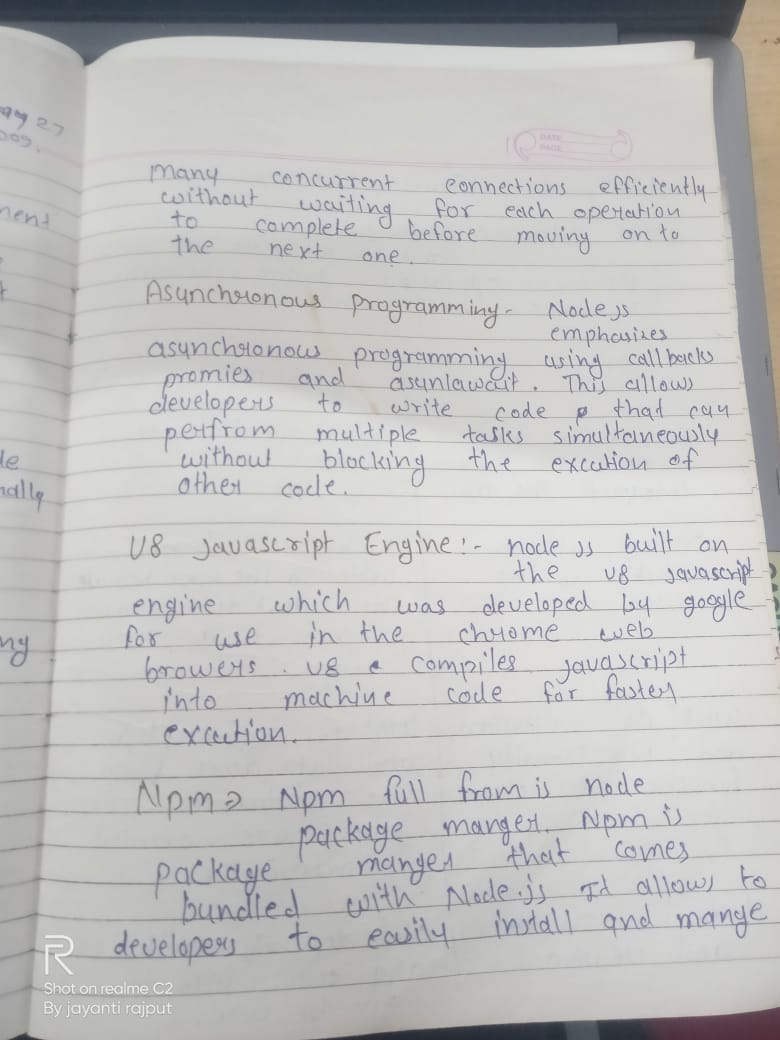 DATE
PAGE
many concurrent connections efficiently
without waiting for each operation
to complete before moving on to
the next one.
Asynchronous programming- Node js
emphasizes
asynchronous programming using callbacks
promies and asyn/await. This allows
developers to write code that can
perfrom multiple tasks simultaneously
without blocking the excution of
other code.
V8 Javascript Engine:- node js built on
the V8 Javascript
engine which was developed by google
for use in the chrome web
browers. V8 compiles javascript
into machine code for faster
excution.
Npm → Npm full from is node
package manger. Npm is
package manger that comes
bundled with Node.js It allows to
developers to easily install and mange
R
Shot on realme C2
By jayanti rajput